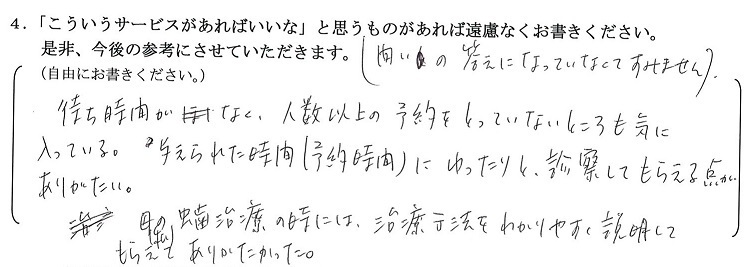 4．「こういうサービスがあればいいな」と思うものがあれば遠慮なくお書きください。
是非、今後の参考にさせていただきます。（問いの答えになっていなくてすみません）.
（自由にお書きください。）
待ち時間がなく、人数以上の予約をとっていないところも気に
入っている。与えられた時間(予約時間)にゆったりと、診察してもらえる点が
ありがたい。
母の虫歯治療の時には、治療方法をわかりやすく説明して
もらえてありがたかった。